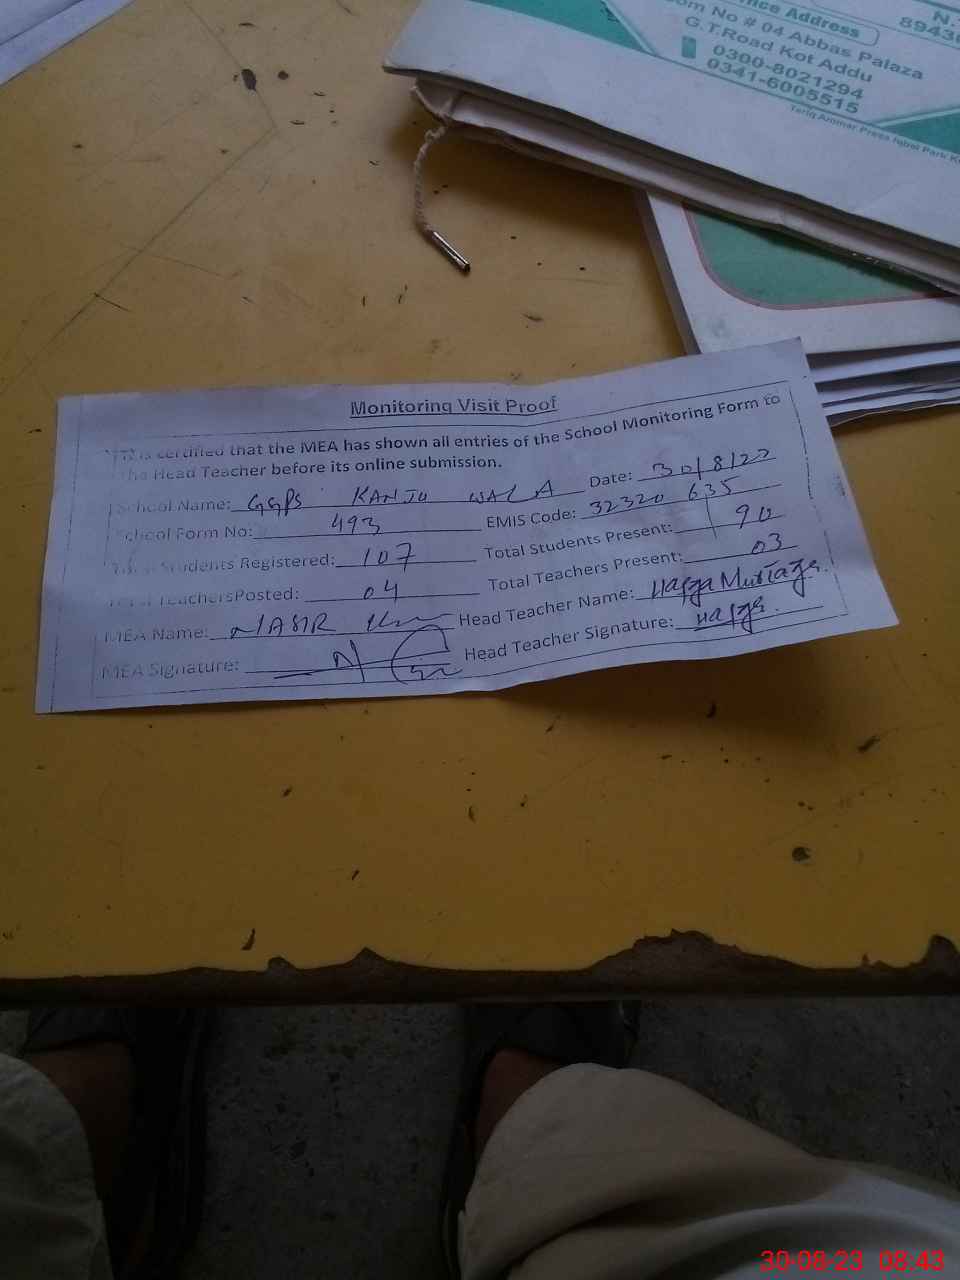 ffice Address
om No # 04 Abbas Palaza
G.T.Road Kot Addu
0300-8021294
0341-6005515
N.
8943
Tariq Ammar Press Iqbal Park K
Monitoring Visit Proof
This is certified that the MEA has shown all entries of the School Monitoring Form to
the Head Teacher before its online submission.
School Name: GGPS KANJU WALA Date: 30/8/23
School Form No: 493 EMIS Code: 32320 635
Total Students Registered: 107 Total Students Present: 90
Total TeachersPosted: 04 Total Teachers Present: 03
MEA Name: NASIR Head Teacher Name: Hafza Murtaza.
MEA Signature: Head Teacher Signature: Hafza.
30-08-23 08:43